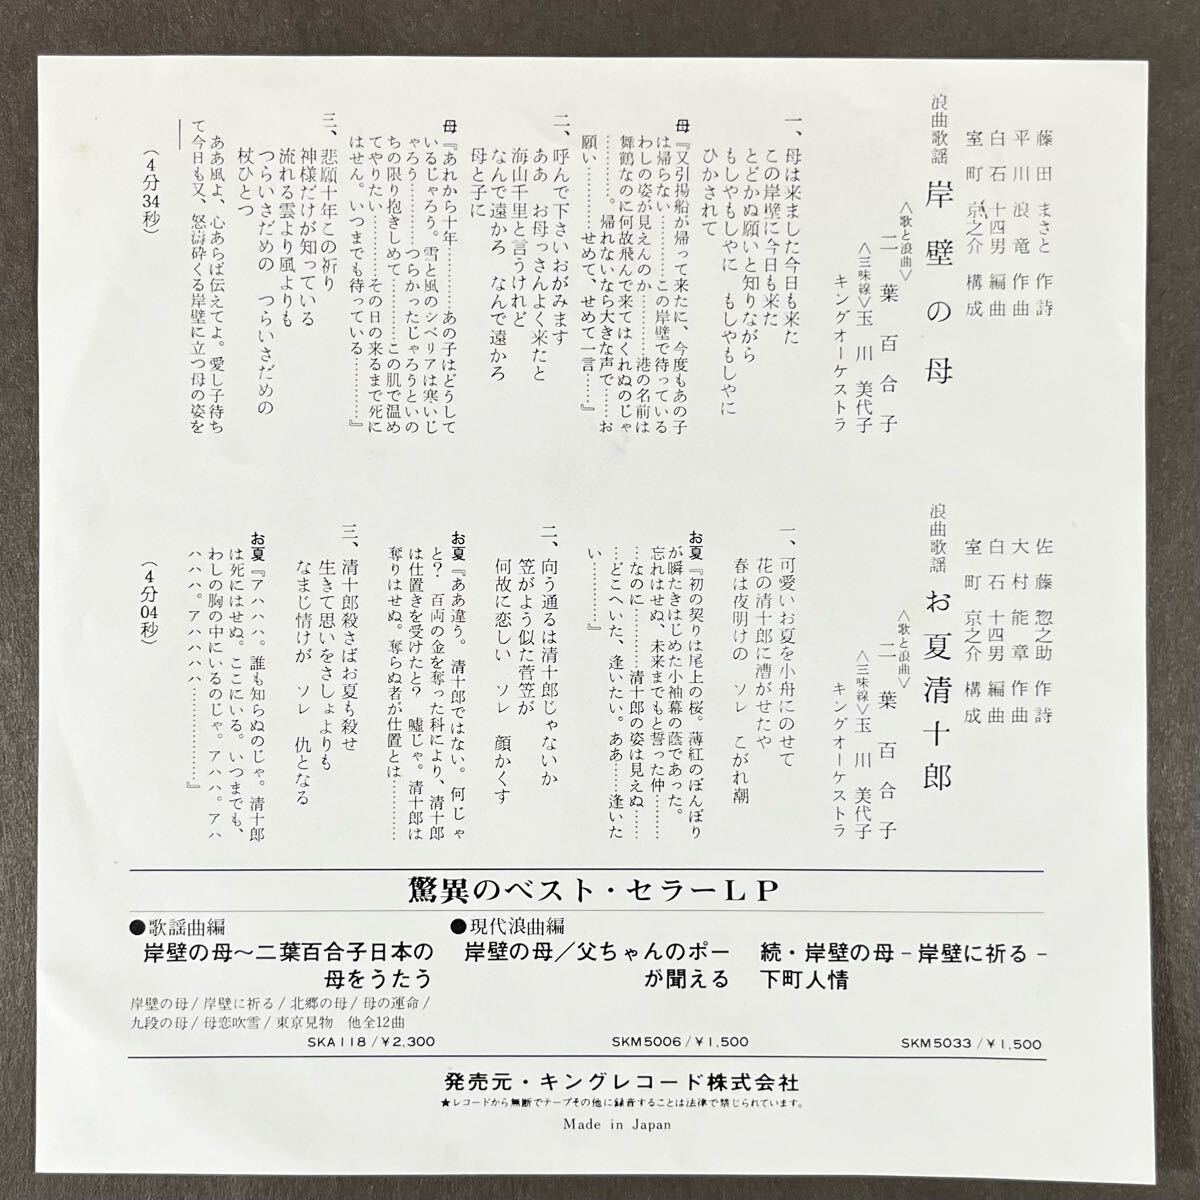 藤田まさと 作詩
平川浪竜 作曲
白石十四男 編曲
室町京之介 構成
浪曲歌謡 岸壁の母
〈歌と浪曲〉二葉百合子
〈三味線〉玉川美代子
キングオーケストラ
一、母は来ました今日も来た
この岸壁に今日も来た
とどかぬ願いと知りながら
もしやもしやに もしやもしやに
ひかされて
母『又引揚船が帰って来たに、今度もあの子
は帰らない………この岸壁で待っている
わしの姿が見えんのか………港の名前は
舞鶴なのに何故飛んで来てはくれぬのじゃ
………。帰れないなら大きな声で……お
願い…………せめて、せめて一言……』
二、呼んで下さいおがみます
ああ お母っさんよく来たと
海山千里と言うけれど
なんで遠かろ なんで遠かろ
母と子に
母『あれから十年………あの子はどうして
いるじゃろう。雪と風のシベリアは寒いじ
ゃろう………つらかったじゃろうといの
ちの限り抱きしめて………この肌で温め
てやりたい………その日の来るまで死に
はせん。いつまでも待っている………』
三、悲願十年この祈り
神様だけが知っている
流れる雲より風よりも
つらいさだめの つらいさだめの
杖ひとつ
ああ風よ、心あらば伝えてよ。愛し子待ち
て今日も又、怒濤砕くる岸壁に立つ母の姿を
――
（4分34秒）
佐藤惣之助 作詩
大村能章 作曲
白石十四男 編曲
室町京之介 構成
浪曲歌謡 お夏清十郎
〈歌と浪曲〉二葉百合子
〈三味線〉玉川美代子
キングオーケストラ
一、可愛いお夏を小舟にのせて
花の清十郎に漕がせたや
春は夜明けの ソレ こがれ潮
お夏『初の契りは尾上の桜。薄紅のぼんぼり
が瞬たきはじめた小袖幕の蔭であった。
忘れはせぬ、未来までもと誓った仲………
…なのに………清十郎の姿は見えぬ……
…どこへいた、逢いたい。ああ……逢いた
い…………』
二、向う通るは清十郎じゃないか
笠がよう似た菅笠が
何故に恋しい ソレ 顔かくす
お夏『ああ違う。清十郎ではない。何じゃ
と？ 百両の金を奪った科により、清十郎
は仕置きを受けたと？ 嘘じゃ。清十郎は
奪りはせぬ。奪らぬ者が仕置とは…………
三、清十郎殺さばお夏も殺せ
生きて思いをさしょよりも
なまじ情けが ソレ 仇となる
お夏『アハハハ。誰も知らぬのじゃ。清十郎
は死にはせぬ。ここにいる。いつまでも、
わしの胸の中にいるのじゃ。アハハ。アハ
ハハハ。アハハハハハ……………』
（4分04秒）
驚異のベスト・セラーLP
●歌謡曲編
岸壁の母～二葉百合子日本の
母をうたう
岸壁の母/岸壁に祈る/北郷の母/母の運命/
九段の母/母恋吹雪/東京見物 他全12曲
SKA118/¥2,300
●現代浪曲編
岸壁の母/父ちゃんのポー
が聞える
SKM5006/¥1,500
続・岸壁の母－岸壁に祈る－
下町人情
SKM5033/¥1,500
発売元・キングレコード株式会社
★レコードから無断でテープその他に録音することは法律で禁じられています。
Made in Japan